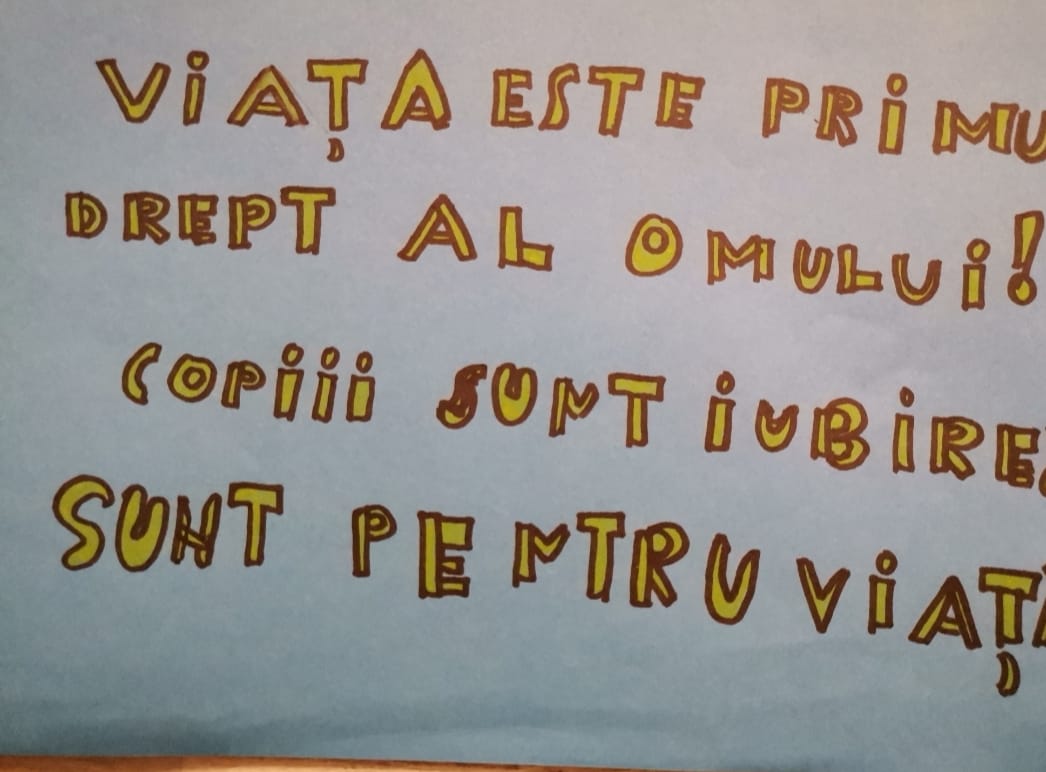 VIAȚA ESTE PRIMU
DREPT AL OMULUI!
COPIII SUNT IUBIRE
SUNT PENTRU VIAȚ